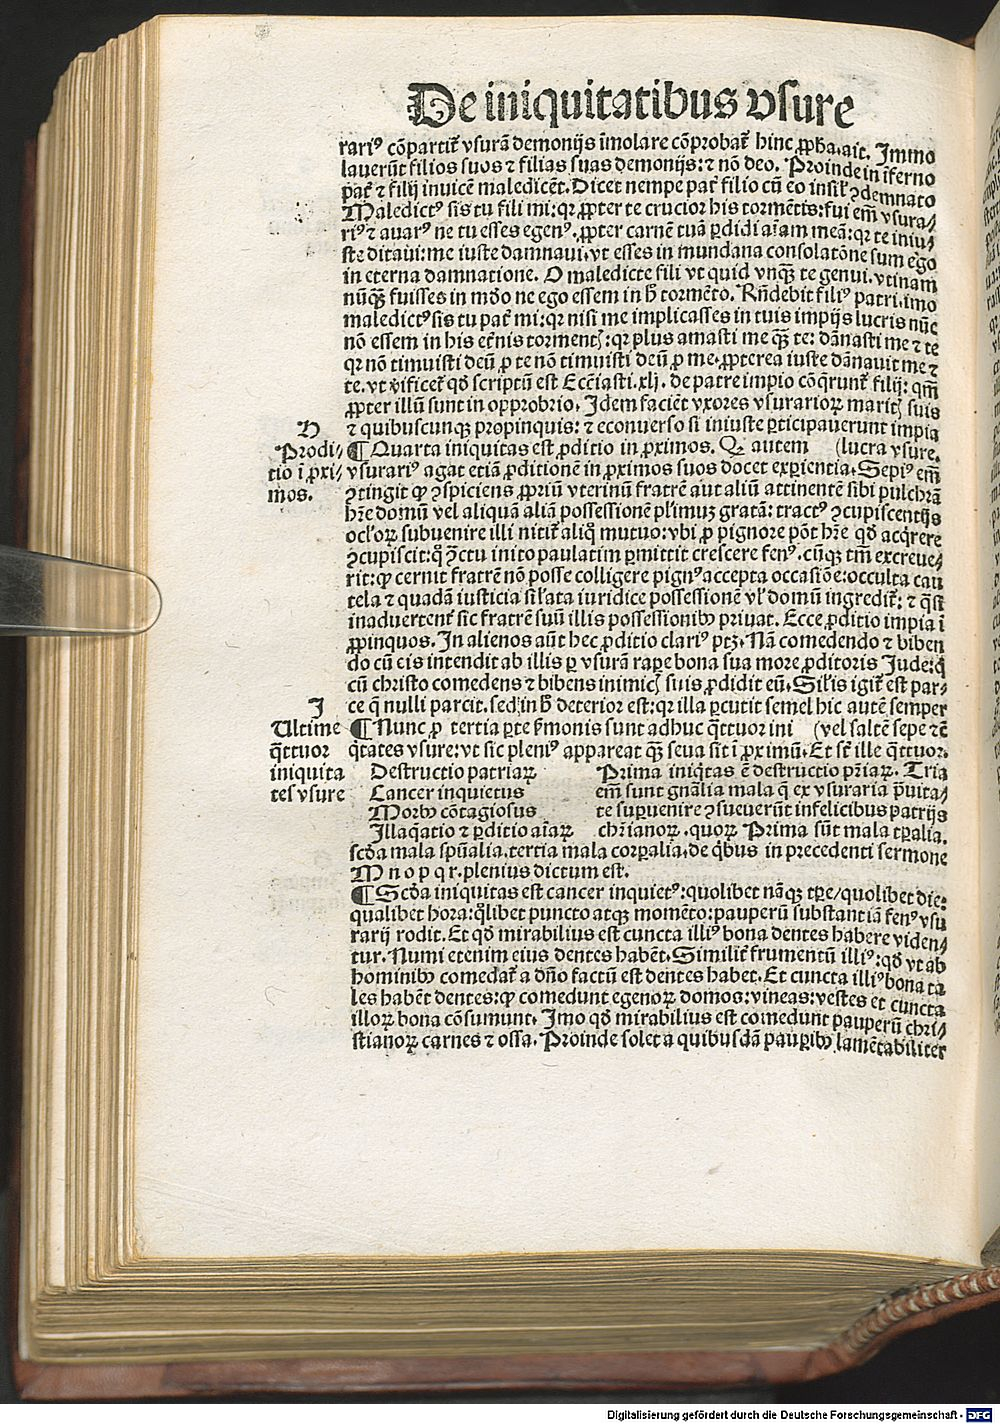 De iniquitatibus vsure
rariꝰ cõpartit᷑ vsurã demonijs ĩmolare cõprobat᷑ hinc ꝓph̃a.ait. Immo
lauerũt filios suos ⁊ filias suas demonijs: ⁊ nõ deo. Proinde in ĩferno
pat᷑ ⁊ filij inuicẽ maledicẽt. Dicet nempe pat᷑ filio cũ eo insil᷑ ꝯdemnato
Maledictꝰ sis tu fili mi: qꝛ ꝓpter te crucior his tormẽtis: fui em̃ vsura/
riꝰ ⁊ auarꝰ ne tu esses egenꝰ. ꝓpter carnẽ tuã ꝑdidi aĩam meã: qꝛ te iniu/
ste ditaui: me iuste damnaui. vt esses in mundana consolatõne sum ego
in eterna damnatione. O maledicte fili vt quid vnq̃ꝫ te genui. vtinam
nũq̃ꝫ fuisses in mũdo ne ego essem in h̃ tormẽto. Rñdebit filiꝰ patri. imo
maledictꝰ sis tu pat᷑ mi: qꝛ nisi me implicasses in tuis impijs lucris nũc
nõ essem in his et᷑nis tormentꝭ: qꝛ plus amasti me q̃ꝫ te: dãnasti me ⁊ te
qꝛ nõ timuisti deũ ꝓ te nõ timuisti deũ ꝓ me. ꝓpterea iuste dãnauit me ⁊
te. vt ṽificet᷑ qď scriptũ est Ecc̃iasti.xlj. de patre impio cõqrunt᷑ filij: qm̃
ꝓpter illũ sunt in opprobrio. Idem faciẽt vxores vsurarioꝝ maritꝭ suis
H
⁊ quibuscunqꝫ propinquis: ⁊ econuerso si iniuste ꝑticipauerunt impia
Prodi/
tio ĩ ꝓxi/
mos.
¶ Quarta iniquitas est ꝓditio in ꝓximos. Qꝫ autem (lucra vsure.
vsurariꝰ agat etiã ꝓditionẽ in ꝓximos suos docet exꝑientia. Sepiꝰ em̃
ꝯtingit ꝙ ꝯspiciens ꝓpriũ vterinũ fratrẽ aut aliũ attinentẽ sibi pulchrã
hr̃e domũ vel aliquã aliã possessionẽ pl᷑imuꝫ gratã: tractꝰ ꝯcupiscentijs
ocl᷑oꝝ subuenire illi nitit᷑ aliq̊ mutuo: vbi ꝓ pignore põt hr̃e qď acq̃rere
ꝯcupiscit: q̊ ꝯctu inito paulatim ꝑmittit crescere fenꝰ. cũqꝫ tm̃ excreue/
rit: ꝙ cernit fratrẽ nõ posse colligere pignꝰ accepta occasiõe: occulta cau
tela ⁊ quadã iusticia sil᷑ata iuridice possessionẽ vl᷑ domũ ingredit᷑: ⁊ q̃si
inaduertent᷑ sic fratrẽ suũ illis possessionibꝰ priuat. Ecce ꝓditio impia ĩ
ꝓpinquos. In alienos aũt hec ꝓditio clariꝰ ptꝫ. Nã comedendo ⁊ biben
do cũ eis intendit ab illis ꝑ vsurã rape bona sua more ꝓditoris Jude: q̇
cũ christo comedens ⁊ bibens inimicꝭ suis ꝓdidit eũ. Sil᷑is igit᷑ est par/
ce q̃ nulli parcit. sed in h̃ deterior est: qꝛ illa ꝑcutit semel hic autẽ semper
I
Ultime
q̃ttuor
iniquita
tes vsure
¶ Nunc ꝓ tertia ꝑte ẜmonis sunt adhuc q̃ttuor ini (vel saltẽ sepe ⁊c̃
q̃tates vsure: vt sic pleniꝰ appareat q̃ꝫ seua sit ĩ ꝓximũ. Et sũt ille q̃ttuor.
Destructio patriaꝝ
Cancer inquietus
Morbꝰ cõtagiosus
Illaq̃atio ⁊ ꝑditio aĩaꝝ
Prima iniq̇tas ẽ destructio pr̃iaꝝ. Tria
em̃ sunt gñalia mala q̃ ex vsuraria ꝓuita/
te suꝑuenire ꝯsueuerũt infelicibus patrijs
chr̃ianoꝝ. quoꝝ Prima sũt mala tꝑalia.
scďa mala spũalia. tertia mala corꝑalia. de q̇bus in precedenti sermone
M n o p q r. plenius dictum est.
¶ Scďa iniquitas est cancer inquietꝰ: quolibet nãqꝫ tꝑe/quolibet die:
qualibet hora: q̃libet puncto atqꝫ momẽto: pauperũ substantiã fenꝰ vsu
rarij rodit. Et qď mirabilius est cuncta illiꝰ bona dentes habere viden/
tur. Numi etenim eius dentes habẽt. Similit᷑ frumentũ illiꝰ: qď vt ab
hominibꝰ comedat᷑ a dño factũ est dentes habet. Et cuncta illiꝰ bona ta
les habẽt dentes: ꝙ comedunt egenoꝝ domos: vineas: vestes et cuncta
illoꝝ bona cõsumunt. Imo qď mirabilius est comedunt pauperũ chri/
stianoꝝ carnes ⁊ ossa. Proinde solet a quibusdã pauꝑibꝰ lamẽtabiliter
Digitalisierung gefördert durch die Deutsche Forschungsgemeinschaft - DFG